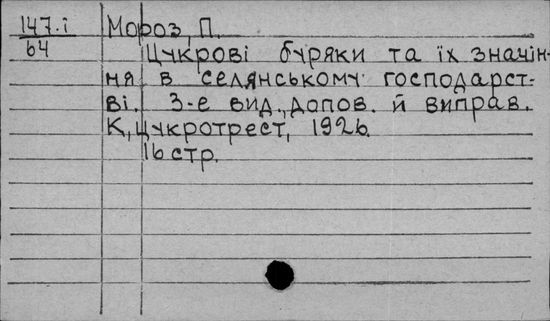 147.і Мороз, П.
64
Цукрові буряки та їх значін-
ня в селянському господарст-
ві. 3-е вид., допов. й виправ.
К, Цукротрест, 1926.
16 стр.